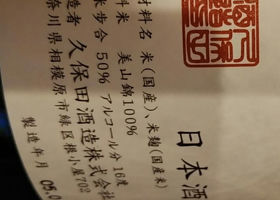 日本酒
材料名 米(国産)、米麹(国産米)
料米 美山錦100%
米歩合 50% アルコール分 16度
造者 久保田酒造株式会社
奈川県相模原市緑区根小屋702
製造年月 05.0